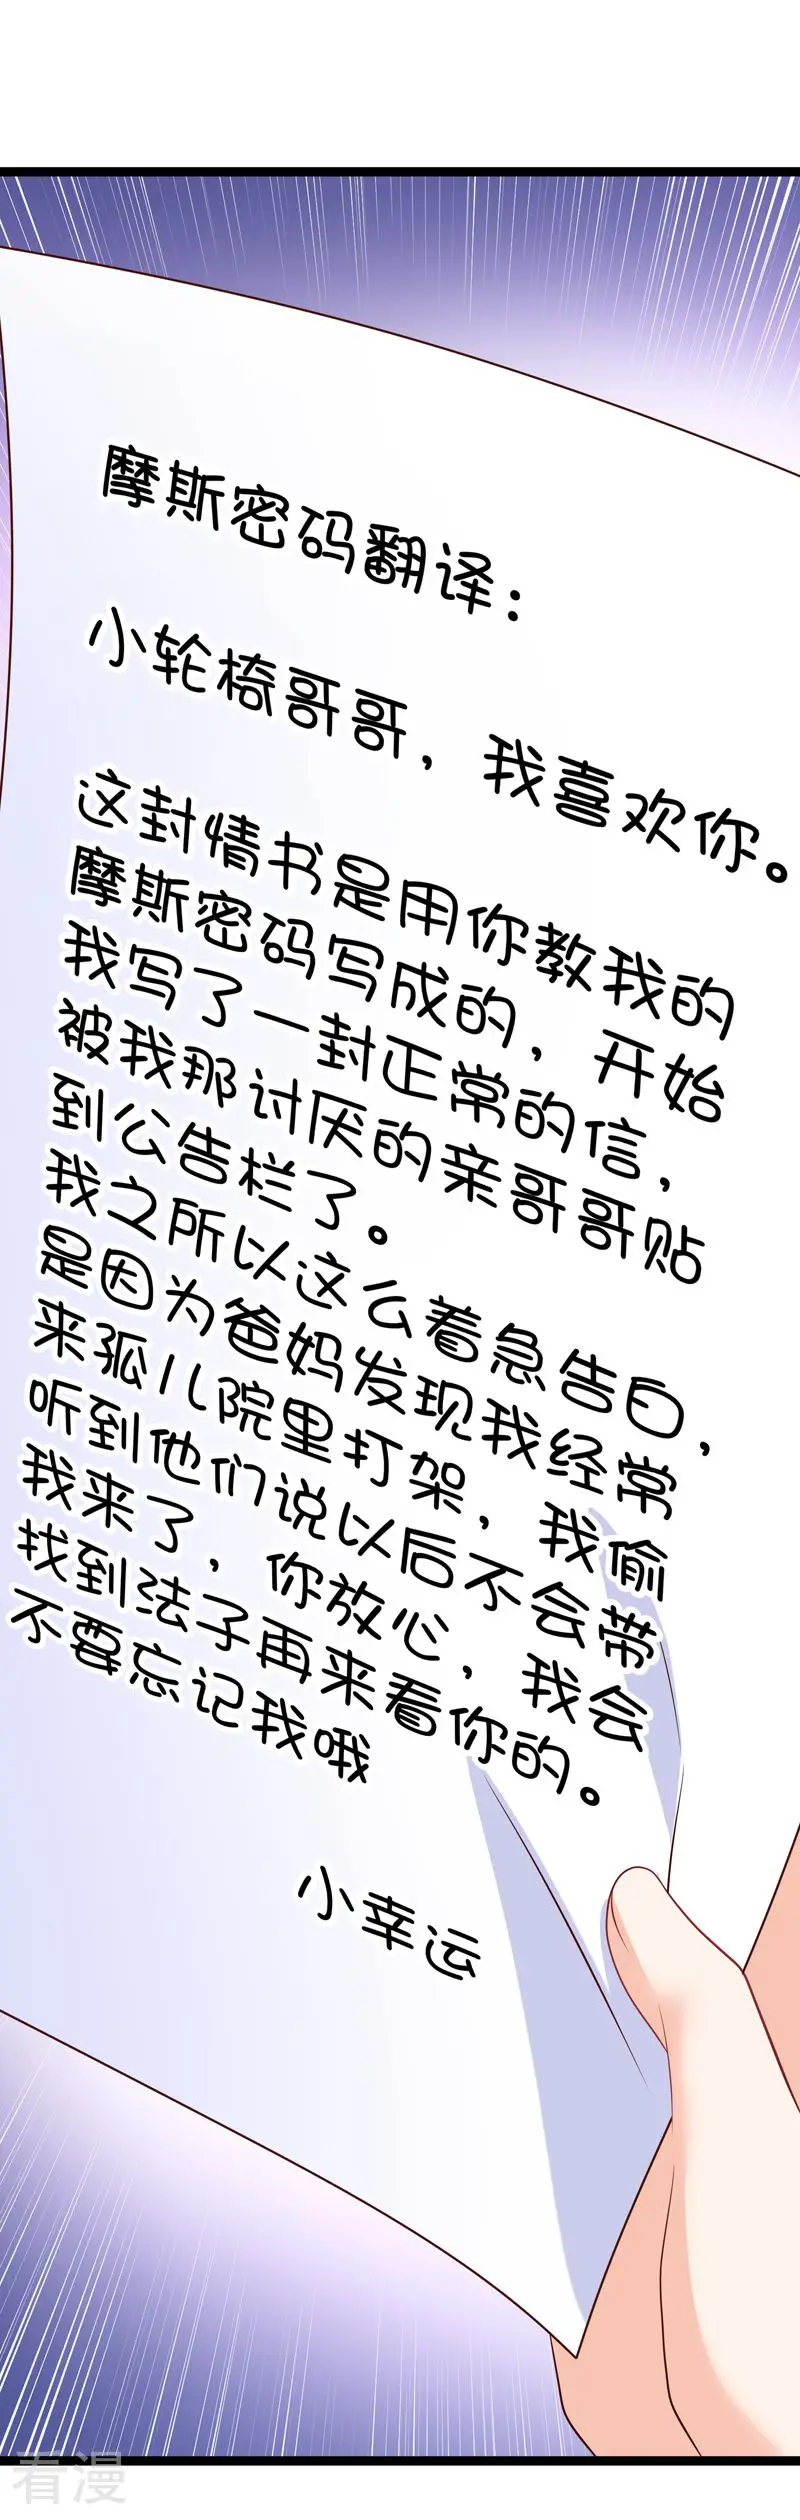 摩斯密码翻译：
小轮椅哥哥，我喜欢你。
这封情书是用你教我的
摩斯密码写成的，开始
我写了一封正常的信，
被我那讨厌的亲哥哥贴
到公告栏了。
我之所以这么着急告白，
是因为爸妈发现我经常
来孤儿院里打架，我偷
听到他们说以后不会带
我来了，你放心，我会
找到法子再来看你的。
不要忘记我哦
小幸运
看漫